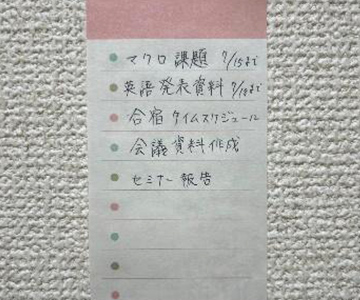 マクロ課題 7/15まで
英語発表資料 7/18まで
合宿タイムスケジュール
会議資料作成
セミナー報告